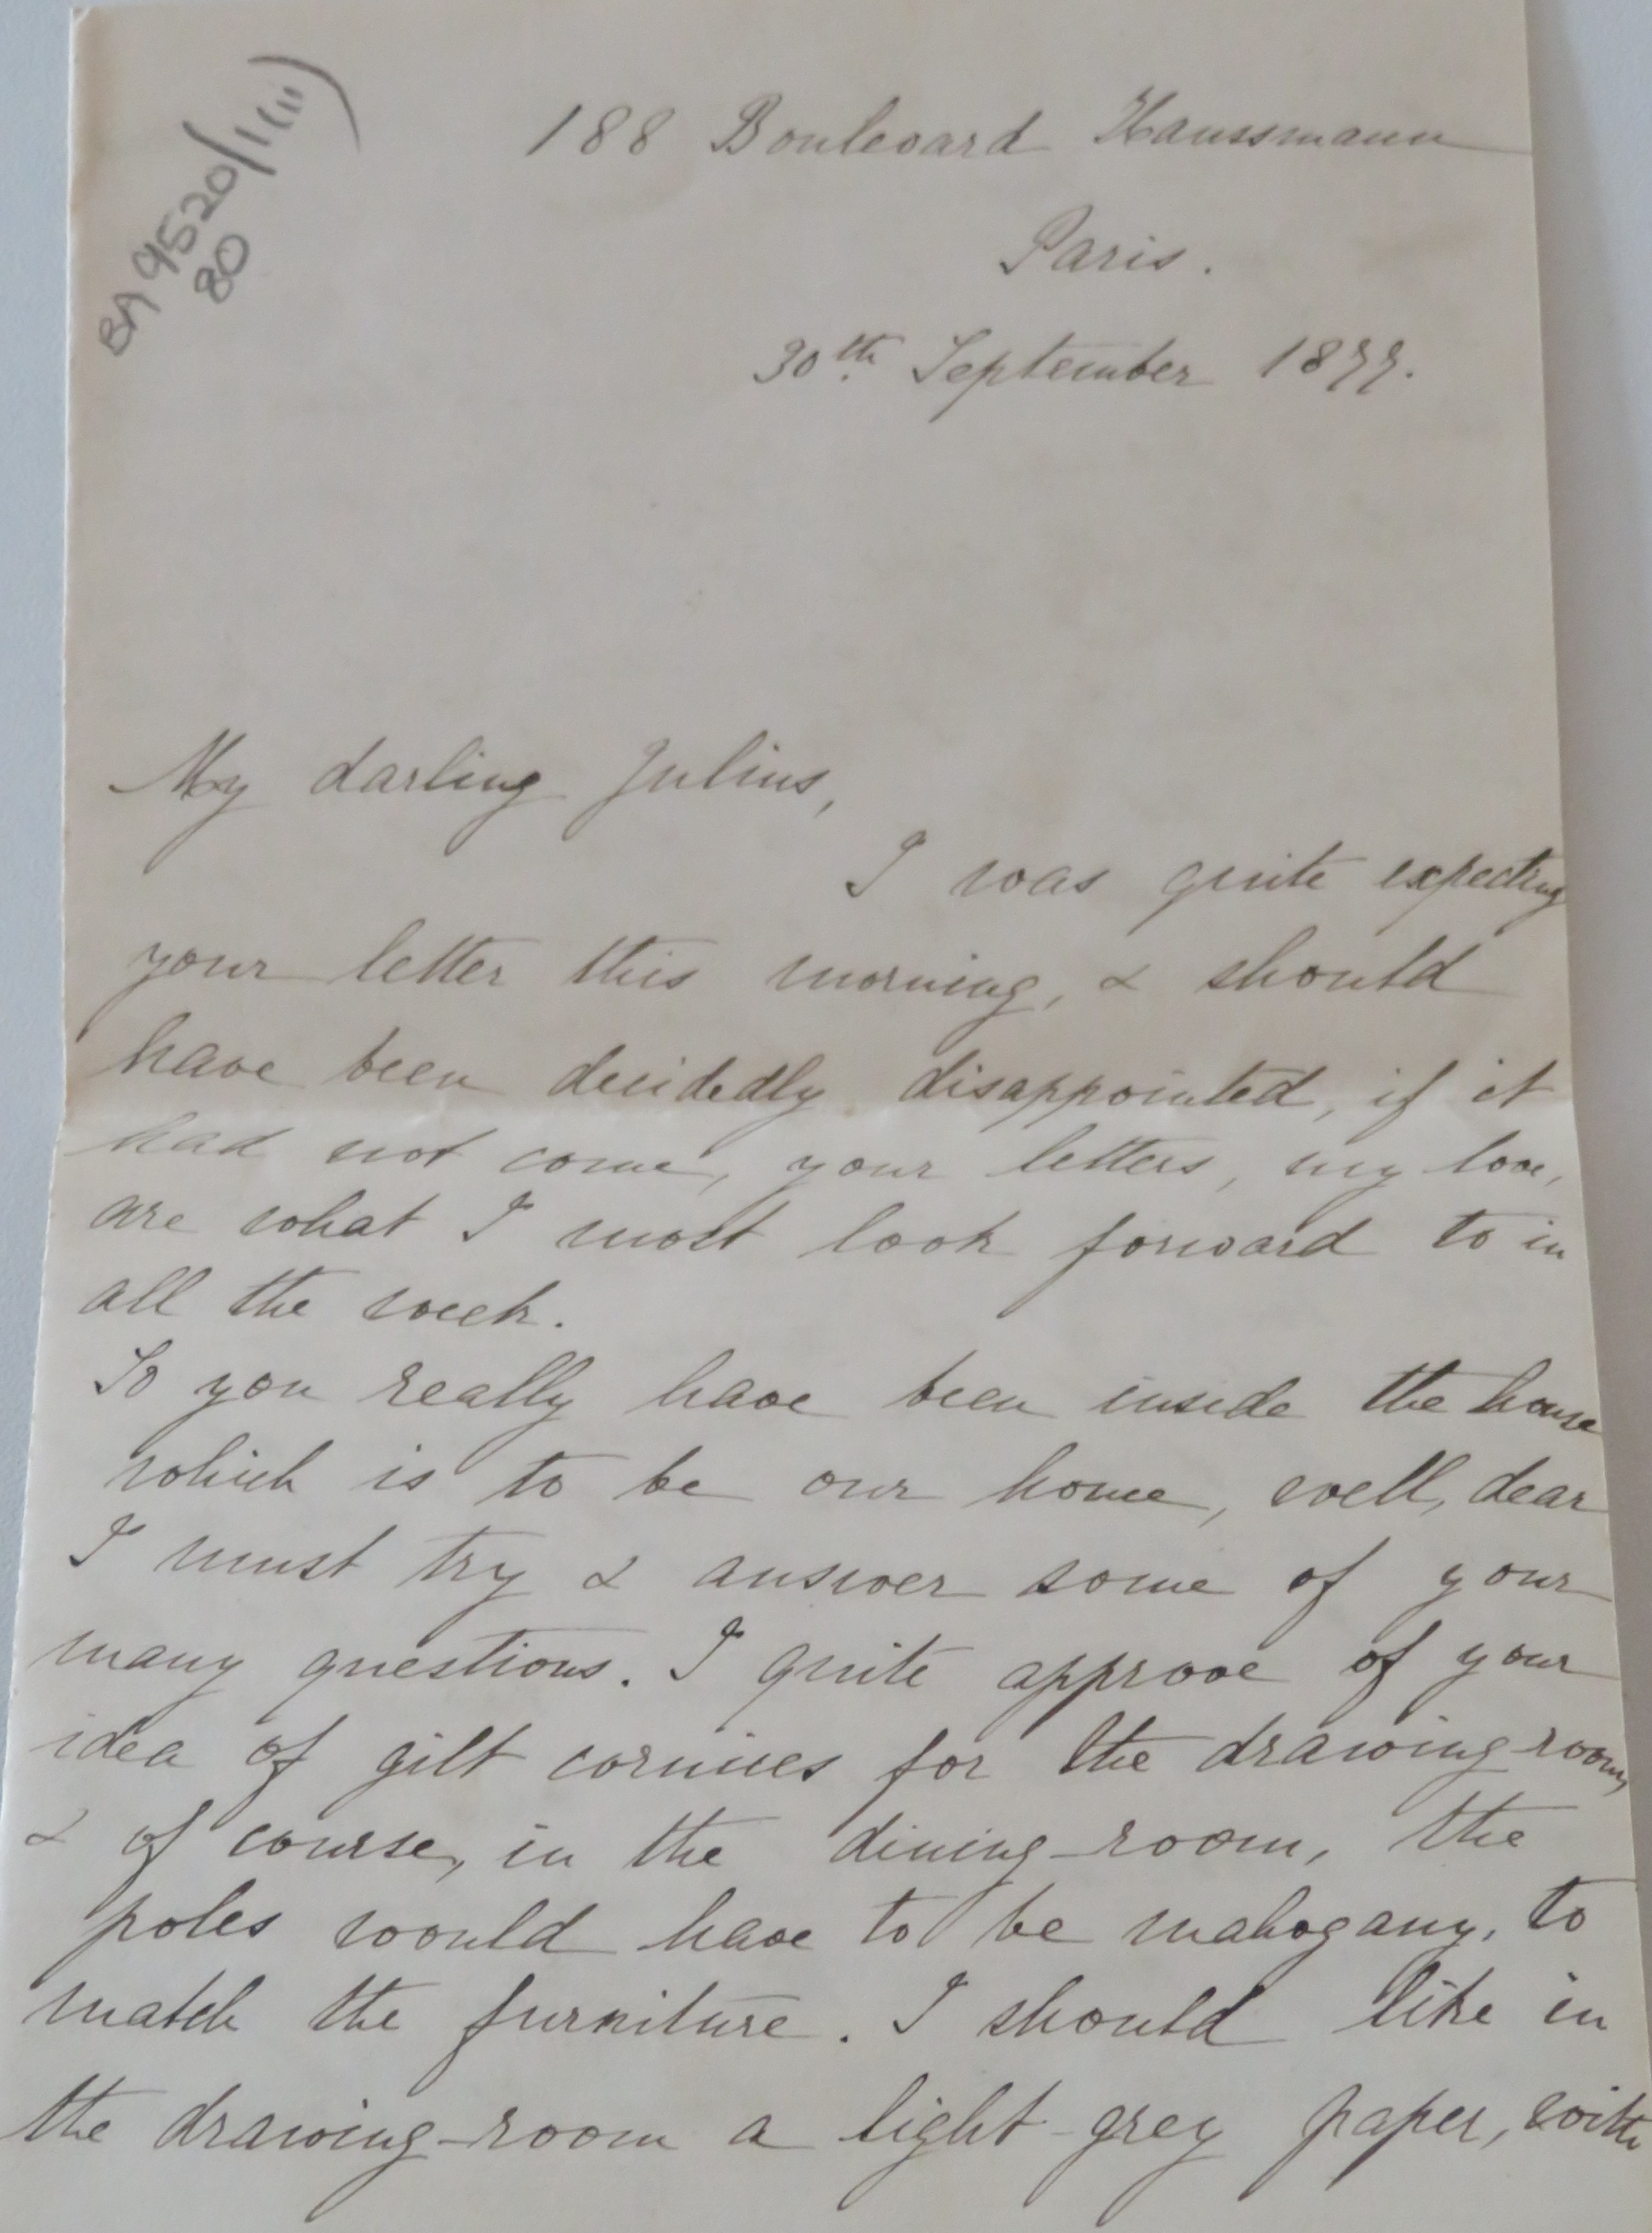 BA 9520/1(iii)
80
188 Boulevard Haussmann
Paris.
30th September 1877.
My darling Julius,
I was quite expecting
your letter this morning, & should
have been decidedly disappointed, if it
had not come, your letters, my love,
are what I most look forward to in
all the week.
So you really have been inside the house
which is to be our home, well, dear
I must try & answer some of your
many questions. I quite approve of your
idea of gilt cornices for the drawing-room,
& of course, in the dining-room, the
poles would have to be mahogany, to
match the furniture. I should like in
the drawing-room a light-grey paper, with